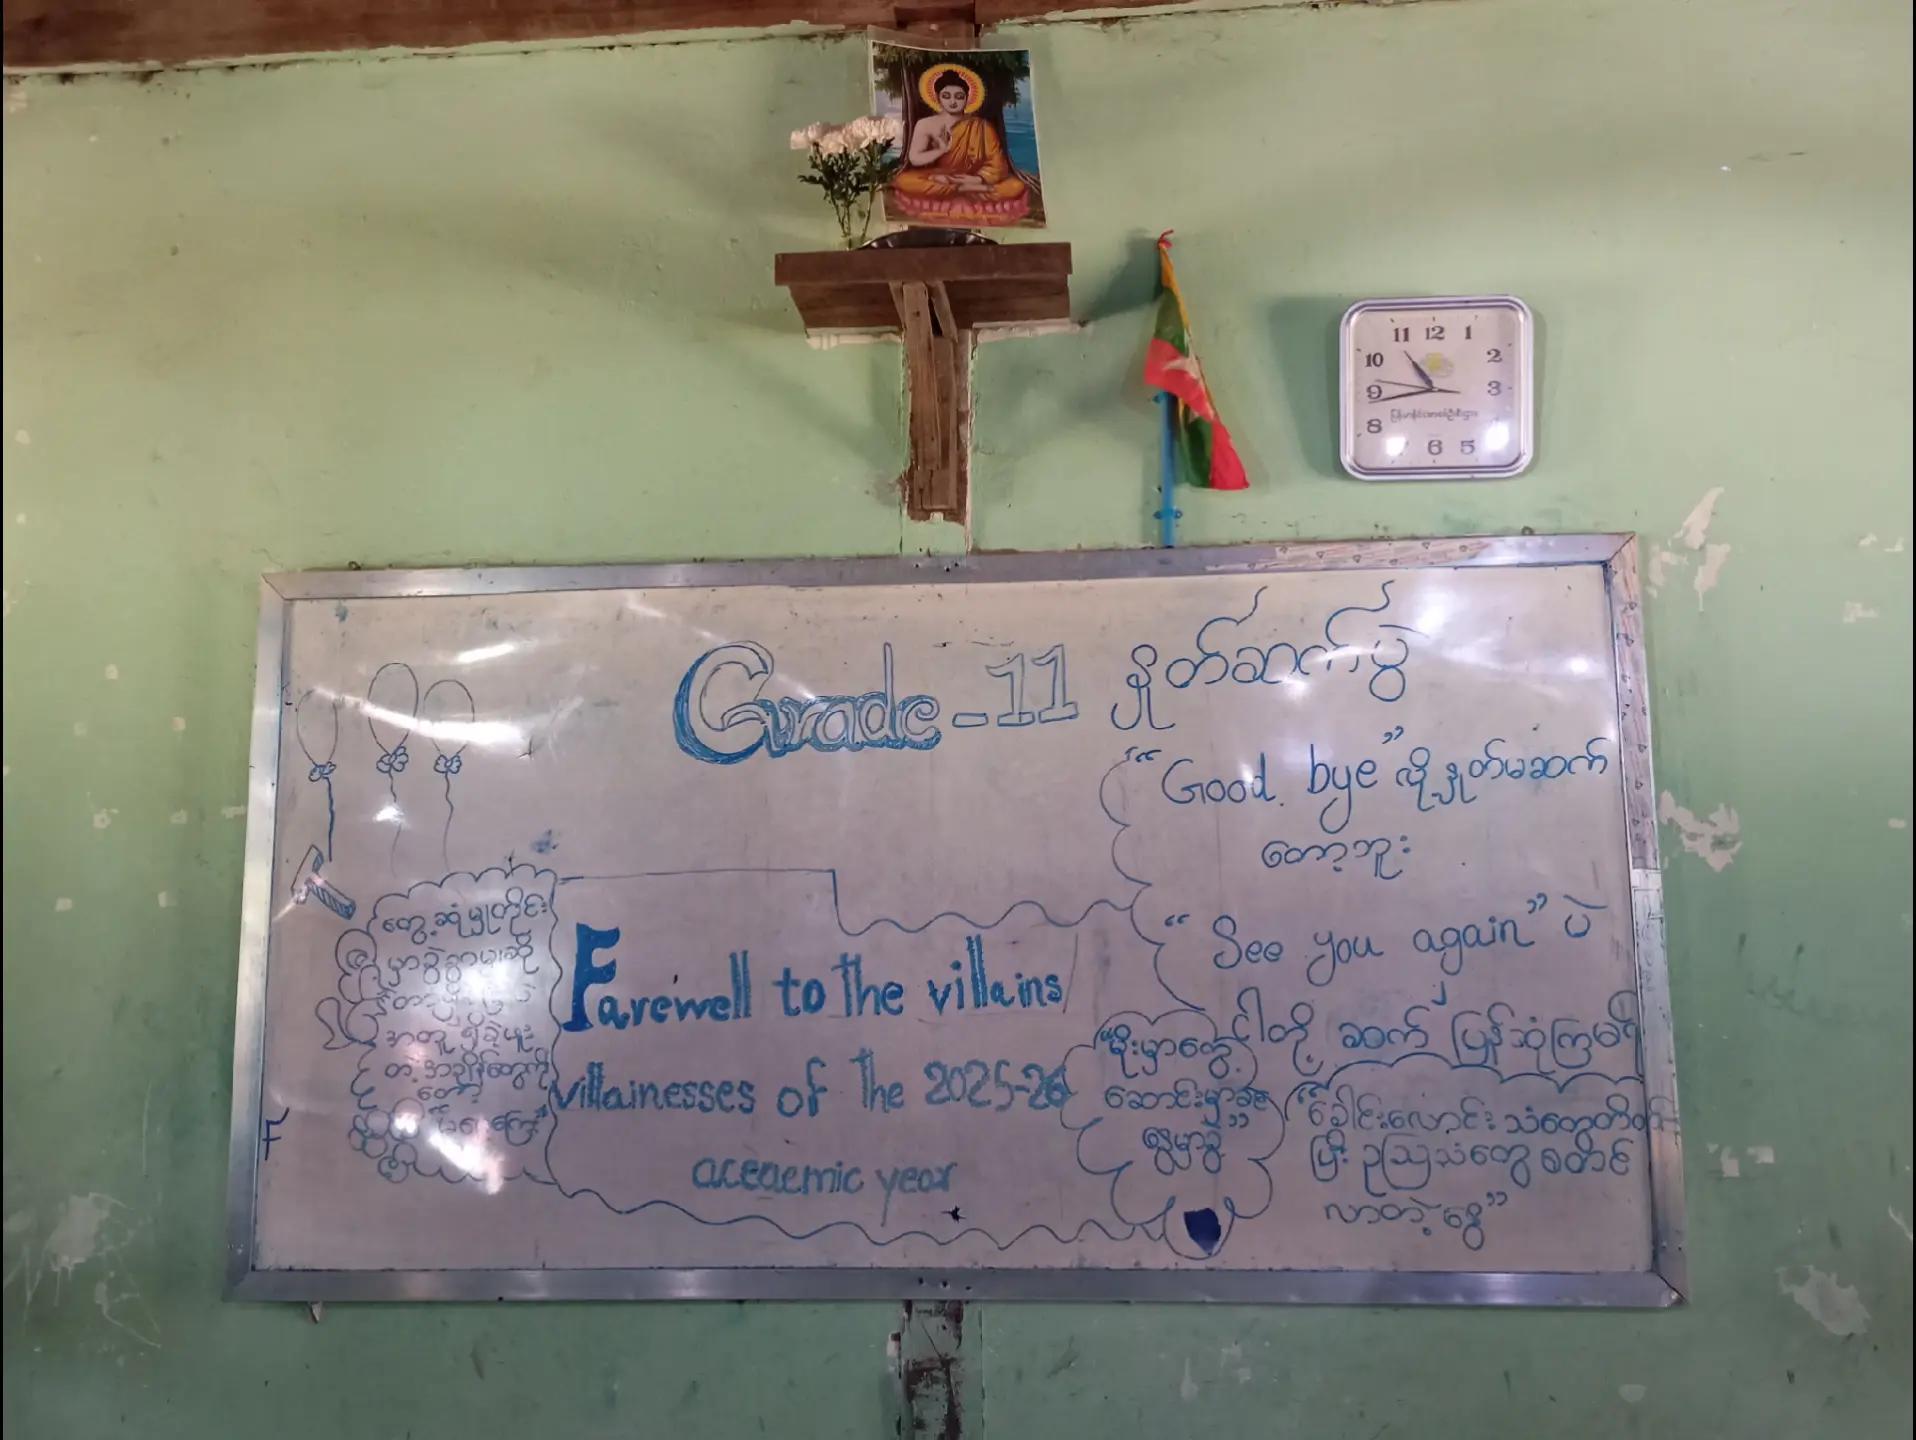 11 12 1
10 2
9 3
8
6 5
Grade-11 နှုတ်ဆက်ပွဲ
"Good bye" လို့ နှုတ်မဆက်
တော့ဘူး
"See you again" ပဲ
ငါတို့ ဆက် ပြန်ဆုံကြမယ်
တွေ့ဆုံမှုတိုင်း
မှာခွဲခွာမှုဆို
အတူ ရှိခဲ့ဖူး
တဲ့အချိန်တွေကို
တော့
Farewell to the villains
villainesses of the 2025-26
aceaemic year
"မိုးမှာတွေ့
ဆောင်းမှာခင်
နွေမှာခွဲ"
"ခေါင်းလောင်း သံတွေတိတ်
ပြီး ဥဩသံတွေ စတင်
လာတဲ့ နွေ"
F